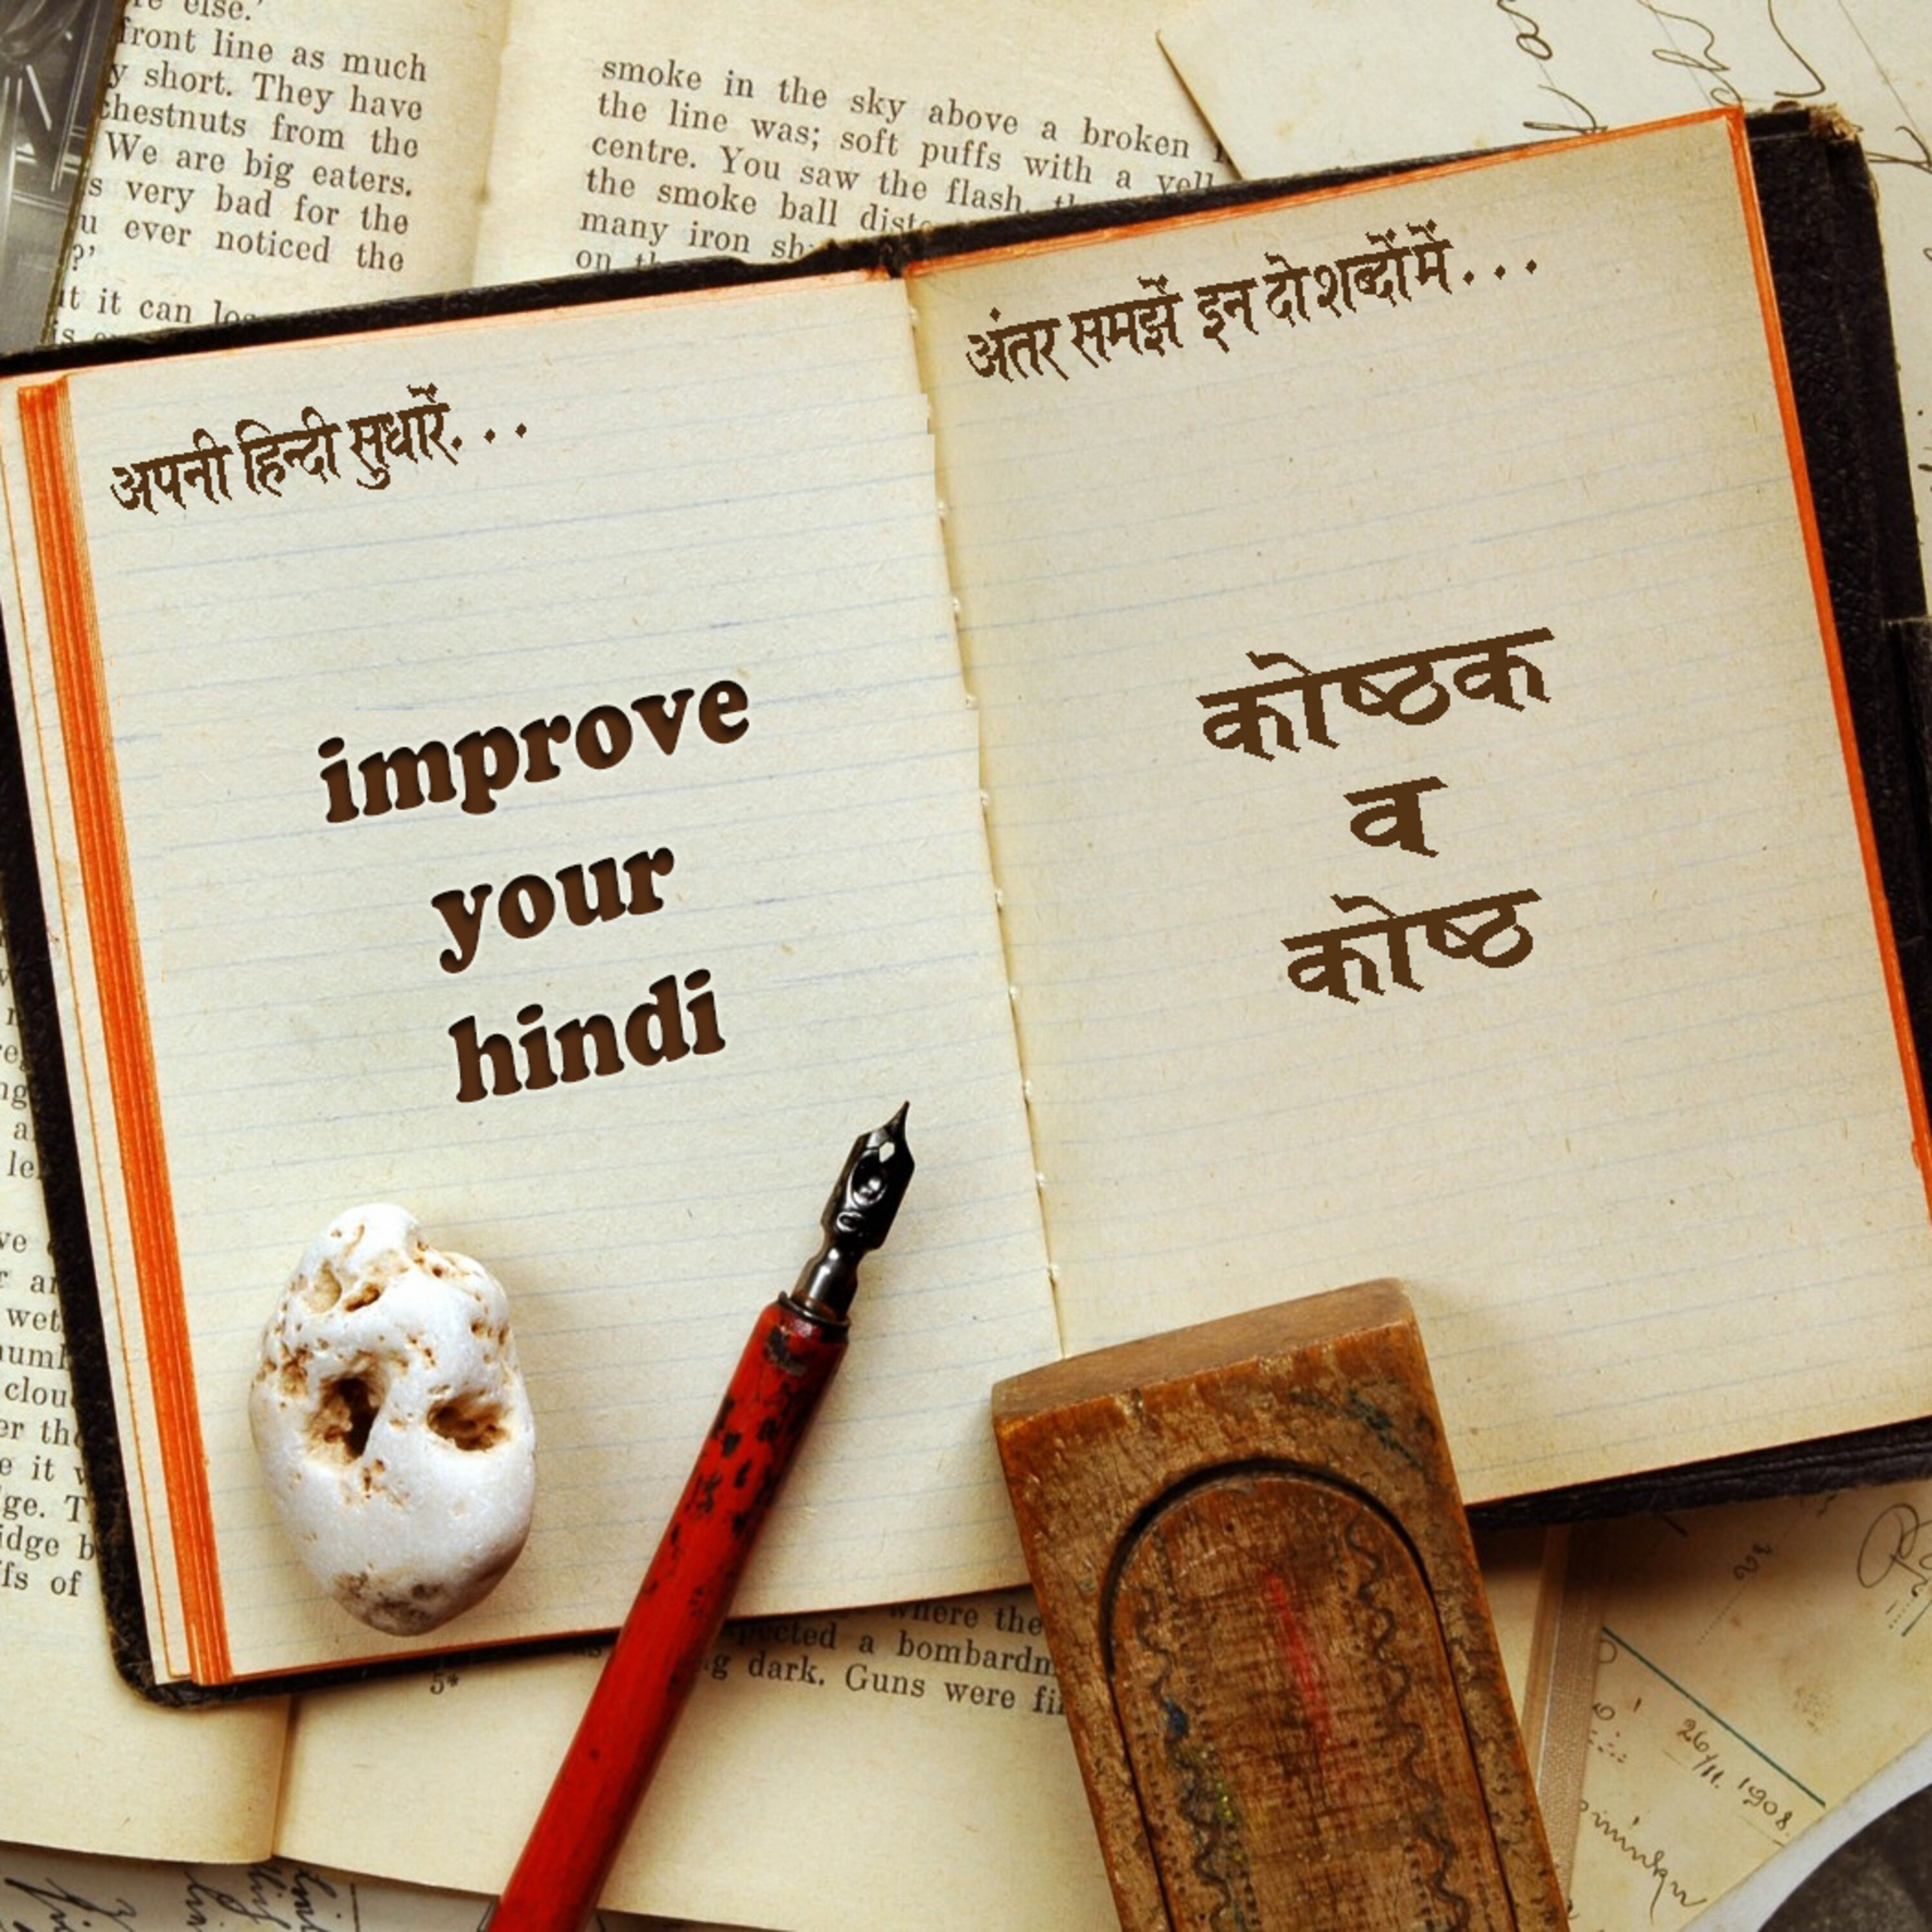 re else.'
front line as much
y short. They have
chestnuts from the
We are big eaters.
s very bad for the
u ever noticed the
?'
it it can
smoke in the sky above a broken
the line was; soft puffs with a
centre. You saw the flash,
the smoke ball
many iron
on
अपनी हिन्दी सुधारें...
improve
your
hindi
अंतर समझें इन दो शब्दों में...
कोष्ठक
व
कोष्ठ
wet
clou
it
ge. T
idge b
fs of
where the
a bombardm
dark. Guns were
5*
26/11. 1908.